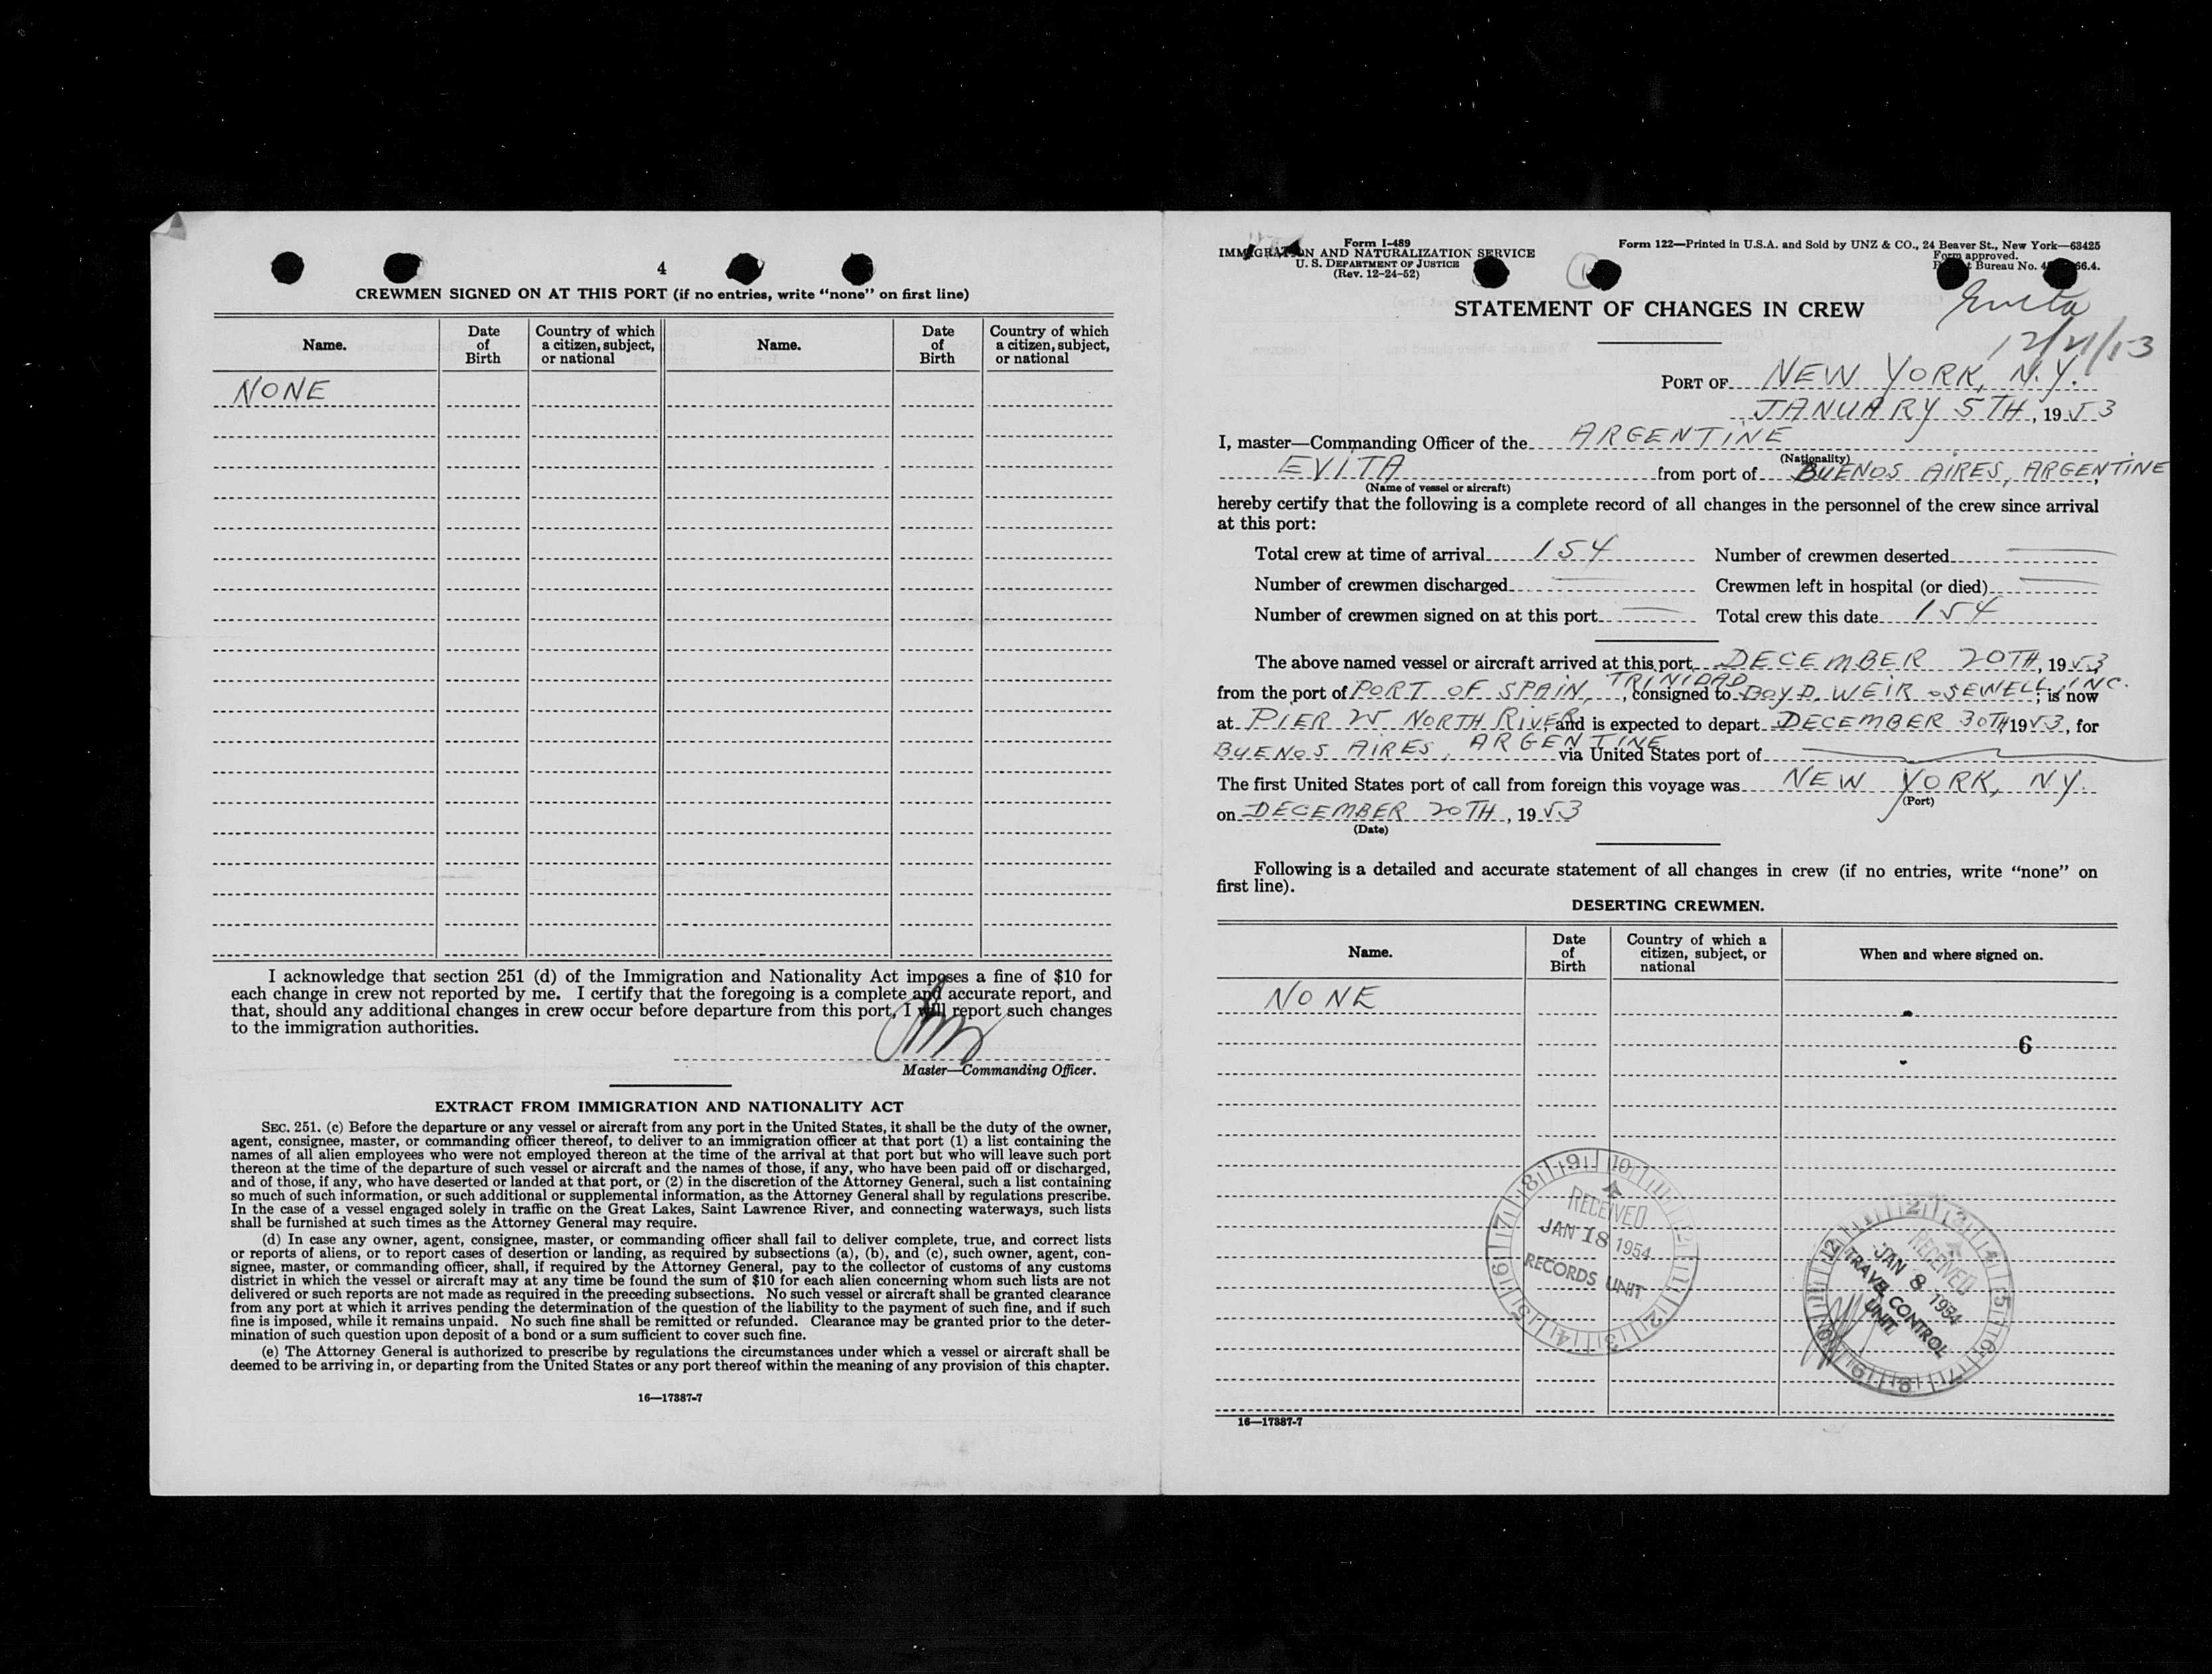 4
CREWMEN SIGNED ON AT THIS PORT (if no entries, write “none” on first line)
Name. Date of Birth Country of which a citizen, subject, or national Name. Date of Birth Country of which a citizen, subject, or national
NONE
I acknowledge that section 251 (d) of the Immigration and Nationality Act imposes a fine of $10 for
each change in crew not reported by me. I certify that the foregoing is a complete and accurate report, and
that, should any additional changes in crew occur before departure from this port, I will report such changes
to the immigration authorities.
Master—Commanding Officer.
EXTRACT FROM IMMIGRATION AND NATIONALITY ACT
SEC. 251. (c) Before the departure or any vessel or aircraft from any port in the United States, it shall be the duty of the owner,
agent, consignee, master, or commanding officer thereof, to deliver to an immigration officer at that port (1) a list containing the
names of all alien employees who were not employed thereon at the time of the arrival at that port but who will leave such port
thereon at the time of the departure of such vessel or aircraft and the names of those, if any, who have been paid off or discharged,
and of those, if any, who have deserted or landed at that port, or (2) in the discretion of the Attorney General, such a list containing
so much of such information, or such additional or supplemental information, as the Attorney General shall by regulations prescribe.
In the case of a vessel engaged solely in traffic on the Great Lakes, Saint Lawrence River, and connecting waterways, such lists
shall be furnished at such times as the Attorney General may require.
(d) In case any owner, agent, consignee, master, or commanding officer shall fail to deliver complete, true, and correct lists
or reports of aliens, or to report cases of desertion or landing, as required by subsections (a), (b), and (c), such owner, agent, con-
signee, master, or commanding officer, shall, if required by the Attorney General, pay to the collector of customs of any customs
district in which the vessel or aircraft may at any time be found the sum of $10 for each alien concerning whom such lists are not
delivered or such reports are not made as required in the preceding subsections. No such vessel or aircraft shall be granted clearance
from any port at which it arrives pending the determination of the question of the liability to the payment of such fine, and if such
fine is imposed, while it remains unpaid. No such fine shall be remitted or refunded. Clearance may be granted prior to the deter-
mination of such question upon deposit of a bond or a sum sufficient to cover such fine.
(e) The Attorney General is authorized to prescribe by regulations the circumstances under which a vessel or aircraft shall be
deemed to be arriving in, or departing from the United States or any port thereof within the meaning of any provision of this chapter.
16—17887-7
Form I-489
IMMIGRATION AND NATURALIZATION SERVICE
U. S. DEPARTMENT OF JUSTICE
(Rev. 12-24-52)
Form 122—Printed in U.S.A. and Sold by UNZ & CO., 24 Beaver St., New York—63425
Form approved.
Bureau No. 66.4.
Evita
STATEMENT OF CHANGES IN CREW
PORT OF NEW YORK, N.Y.
JANUARY 5TH, 1953
I, master—Commanding Officer of the ARGENTINE
(Nationality)
EVITA from port of BUENOS AIRES, ARGENTINE
(Name of vessel or aircraft)
hereby certify that the following is a complete record of all changes in the personnel of the crew since arrival
at this port:
Total crew at time of arrival 154 Number of crewmen deserted
Number of crewmen discharged Crewmen left in hospital (or died)
Number of crewmen signed on at this port Total crew this date 154
The above named vessel or aircraft arrived at this port DECEMBER 20TH, 1953
from the port of PORT OF SPAIN, TRINIDAD, consigned to BOYD, WEIR & SEWELL, INC.; is now
at PIER 25 NORTH RIVER, and is expected to depart DECEMBER 30TH 1953, for
BUENOS AIRES, ARGENTINE via United States port of
The first United States port of call from foreign this voyage was NEW YORK, N.Y.
(Port)
on DECEMBER 20TH, 1953
(Date)
Following is a detailed and accurate statement of all changes in crew (if no entries, write “none” on
first line).
DESERTING CREWMEN.
Name. Date of Birth Country of which a citizen, subject, or national When and where signed on.
NONE
6
RECEIVED
JAN 18 1954
RECORDS UNIT
RECEIVED
JAN 8 1954
TRAVEL CONTROL
UNIT
16—17887-7